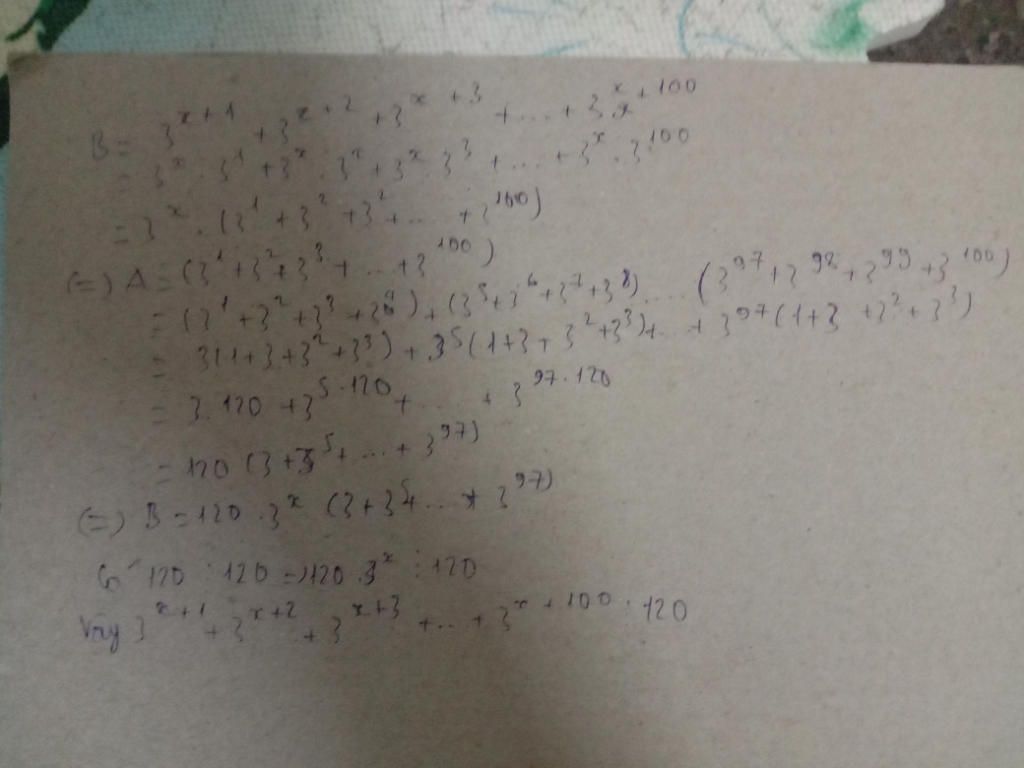 B = 3^{x+1} + 3^{x+2} + 3^{x+3} + ... + 3^{x+100}
= 3^x . 3^1 + 3^x . 3^2 + 3^x . 3^3 + ... + 3^x . 3^{100}
= 3^x . (3^1 + 3^2 + 3^2 + ... + 3^{100})
(=) A = (3^1 + 3^2 + 3^3 + ... + 3^{100})
= (3^1 + 3^2 + 3^3 + 3^4) + (3^5 + 3^6 + 3^7 + 3^8) .... (3^{97} + 3^{98} + 3^{99} + 3^{100})
= 3(1 + 3 + 3^2 + 3^3) + 3^5(1 + 3 + 3^2 + 3^3) + ... + 3^{97}(1 + 3 + 3^2 + 3^3)
= 3.120 + 3^{5.120} + ... + 3^{97.120}
= 120 (3 + 3^5 + ... + 3^{97})
(=) B = 120 . 3^x (3 + 3^5 + ... + 3^{97})
Có 120 ⋮ 120 => 120 . 3^x ⋮ 120
Vậy 3^{x+1} + 3^{x+2} + 3^{x+3} + ... + 3^{x+100} ⋮ 120